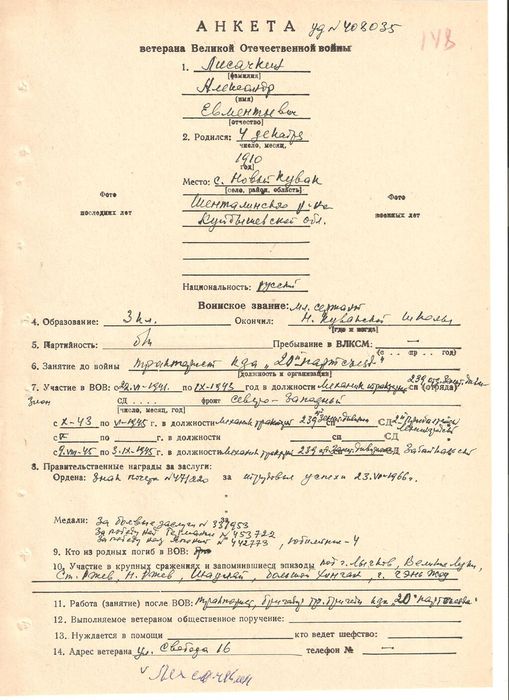 АНКЕТА уд № 408035
14В
ветерана Великой Отечественной войны
1. Лисачкин
[фамилия]
Александр
(имя)
Евментьевич
[отчество]
2. Родился: 4 декабря
число, месяц,
1910
год]
Место: с. Новый Кувак
[село, район, область]
Фото
последних лет
Фото
военных лет
Шенталинского р-на
Куйбышевской обл.
Национальность: русский
Воинское звание: мл. сержант
4. Образование: 3 кл. Окончил: Н. Кувакской школы
[где и когда]
5. Партийность: б/п Пребывание в ВЛКСМ: —
(с ... пр ... год)
6. Занятие до войны тракторист к-за "20 партсъезд"
[должность и организация]
7. Участие в ВОВ: с 22.VI-1941. по IX-1943 год в должности механик 239 сп (отряда)
СД фронт Северо-Западный
число, месяц, год]
с X-43 по VI-1945 г. в должности механик 239 сп СД
с по г. в должности сп СД
с 9.VIII-45 по 3.IX-1945 г. в должности механик 239 сп СД Забайкальский
8. Правительственные награды за заслуги:
Ордена: знак почета № 471220 за трудовые успехи 23.VI-1966 г.
Медали: За боевые заслуги № 337953
За победу над Германией № 453722
За победу над Японией № 442773, юбилейные - 4
9. Кто из родных погиб в ВОВ:
10. Участие в крупных сражениях и запомнившиеся эпизоды под г. Лычков, Великие Луки,
Ст. Ржев, Н. Ржев, большой Хинган, г.
11. Работа (занятие) после ВОВ: тракторист, бригадир тр. бригады к-за 20 партсъезда
12. Выполняемое ветераном общественное поручение:
13. Нуждается в помощи кто ведет шефство:
14. Адрес ветерана ул. Свобода 16 телефон № —